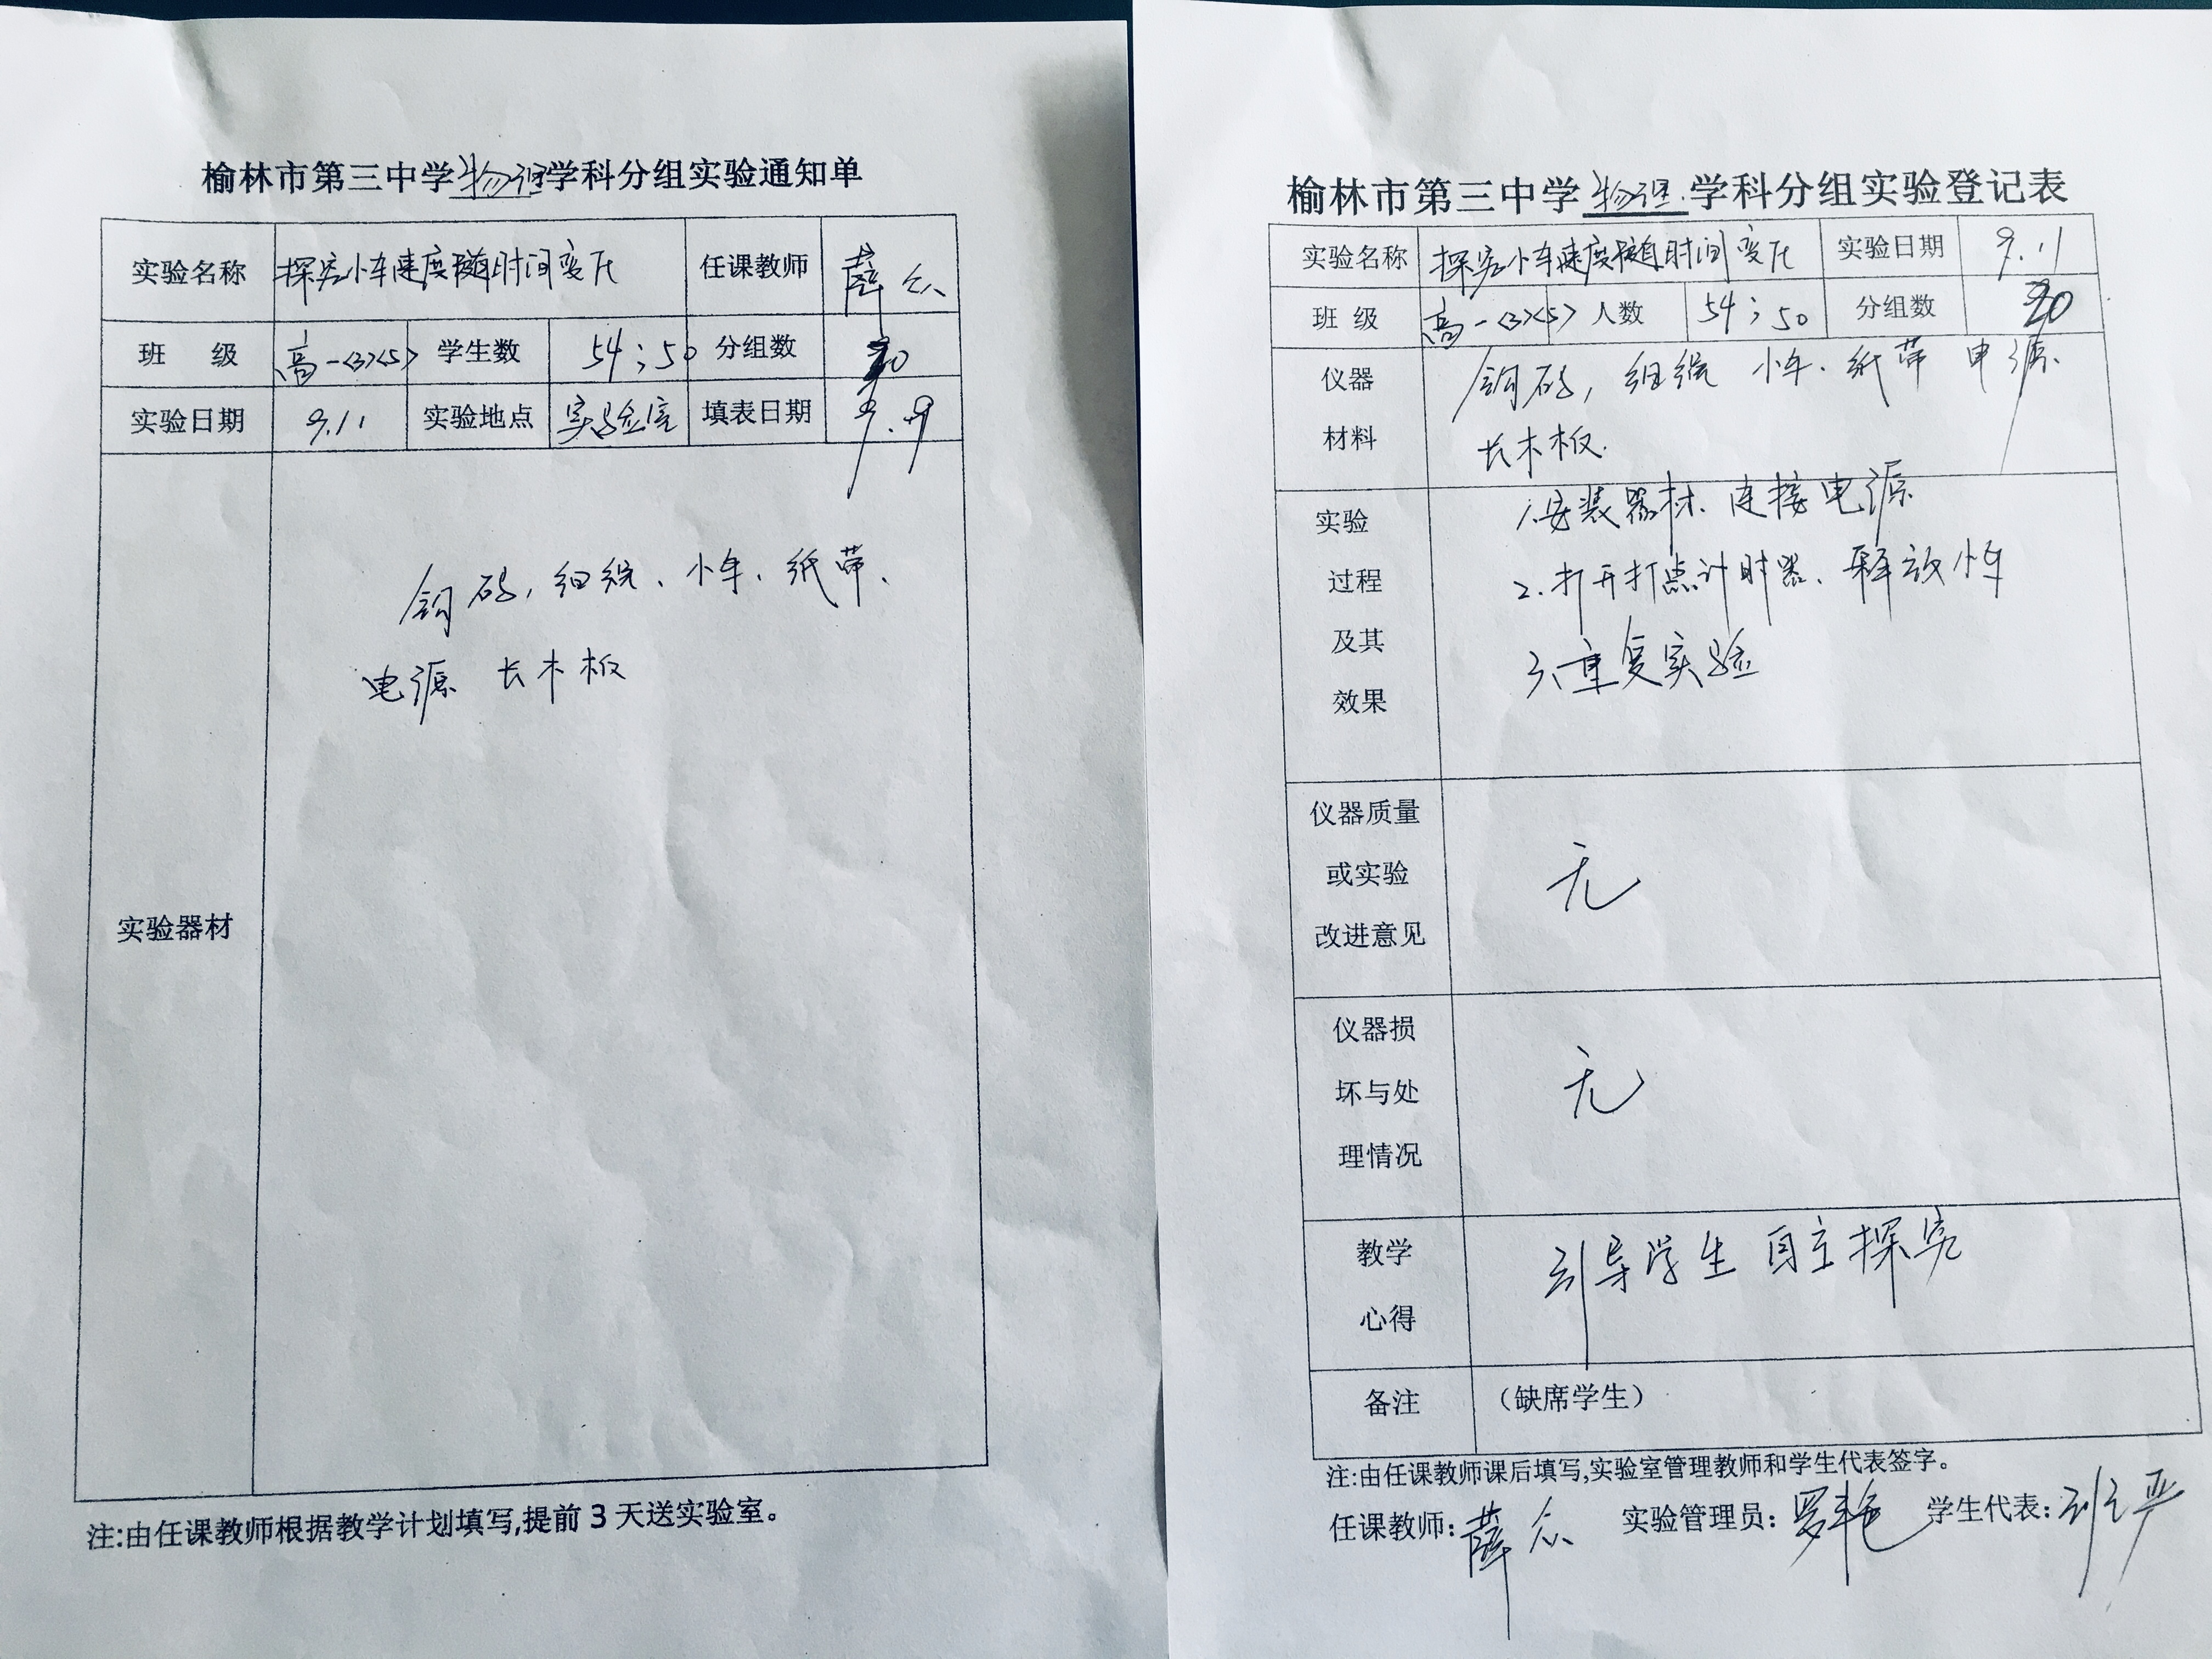 榆林市第三中学物理学科分组实验通知单
实验名称 探究小车速度随时间变化 任课教师 薛众
班 级 高一<3><5> 学生数 54;50 分组数
实验日期 9.11 实验地点 实验室 填表日期 9.9
实验器材
钩码,细线、小车、纸带、
电源 长木板
注:由任课教师根据教学计划填写,提前3天送实验室。
榆林市第三中学物理学科分组实验登记表
实验名称 探究小车速度随时间变化 实验日期 9.11
班 级 高一<3><5> 人数 54;50 分组数
仪器材料
钩码,细线 小车、纸带 电源、
长木板.
实验过程及其效果
1.安装器材、连接电源
2.打开打点计时器、释放小车
3、重复实验
仪器质量或实验改进意见
无
仪器损坏与处理情况
无
教学心得
引导学生自主探究
备注 (缺席学生)
注:由任课教师课后填写,实验室管理教师和学生代表签字。
任课教师:薛众 实验管理员: 学生代表: